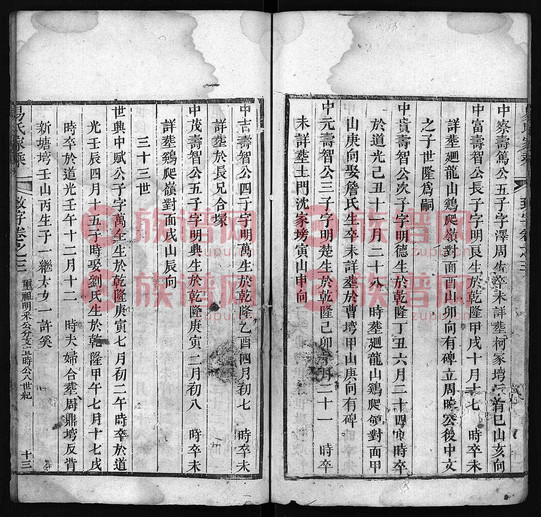 中察壽篤公五子字澤周生卒未詳葬柯家塆
首巳山亥向
中富壽智公長子字明良生於乾隆甲戌十月十七 時卒未
詳葬廻龍山鷄爬嶺對面酉山卯向有碑立周晚公後中文
之子世隆爲嗣
中貴壽智公次子字明德生於乾隆丁丑六月二十四寅時卒
於道光己丑十月二十八 時葬廻龍山鷄爬嶺對面甲
山庚向娶詹氏生卒未詳葬於曹塆甲山庚向有碑
中元壽智公三子字明楚生於乾隆己卯 月二十一 時卒
未詳葬土門沈家塝寅山申向
中吉壽智公四子字明萬生於乾隆乙酉四月初七 時卒未
詳葬於長兄合塚
中茂壽智公五子字明典生於乾隆庚寅二月初八 時卒未
詳葬鷄爬嶺對面戌山辰向
三十三世
世典中賦公子字萬全生於乾隆庚寅七月初二午時卒於道
光壬辰四月十五子時娶劉氏生於乾隆甲午七月十七戌
時卒於道光壬午十二月十一 時夫婦合葬周鼎塆反背
新塘塆壬山丙生子一繼太女一許奚
易氏家乘
致字卷之三
重祖明釆公分支
時公八世紀
十三
族譜网